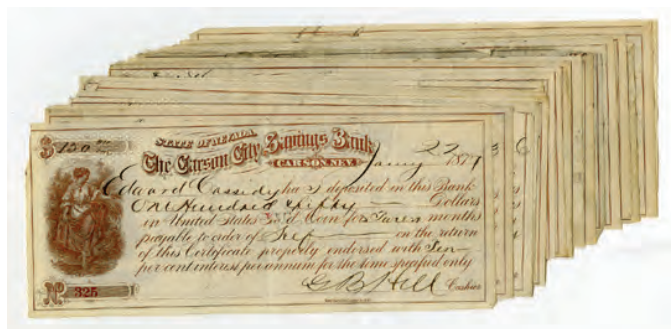 $150
STATE OF NEVADA.
The Carson City Savings Bank
CARSON, NEV. 22 187
Edward Cassidy has deposited in this Bank
One Hundred & fifty Dollars
in United States Gold Coin for months
payable to order of Self on the return
of this Certificate properly endorsed with Ten
per cent interest per annum for the time specified only
No 325
G B Hill Cashier